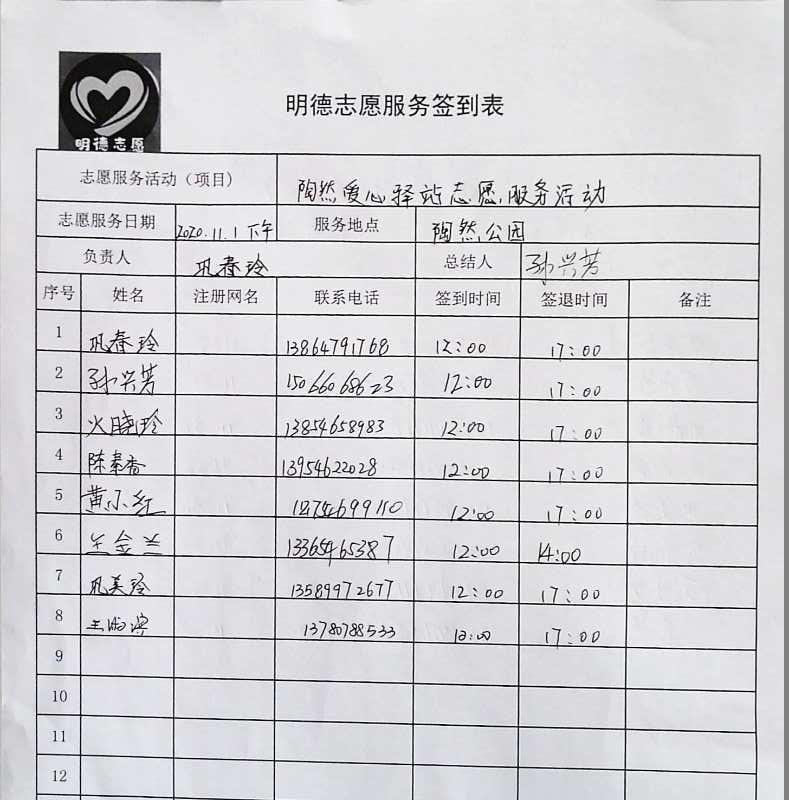 明德志愿
明德志愿服务签到表
志愿服务活动（项目） 陶然爱心驿站志愿服务活动
志愿服务日期 2020.11.1下午 服务地点 陶然公园
负责人 巩春玲 总结人 孙兴芳
序号 姓名 注册网名 联系电话 签到时间 签退时间 备注
1 巩春玲 13864791768 12:00 17:00
2 孙兴芳 15066068623 12:00 17:00
3 火晓玲 13854658983 12:00 17:00
4 陈秦香 13954622028 12:00 17:00
5 黄小红 12:00 17:00
6 兰金兰 13365465387 12:00 14:00
7 巩美玲 13589972677 12:00 17:00
8 13780788533 12:00 17:00
9
10
11
12